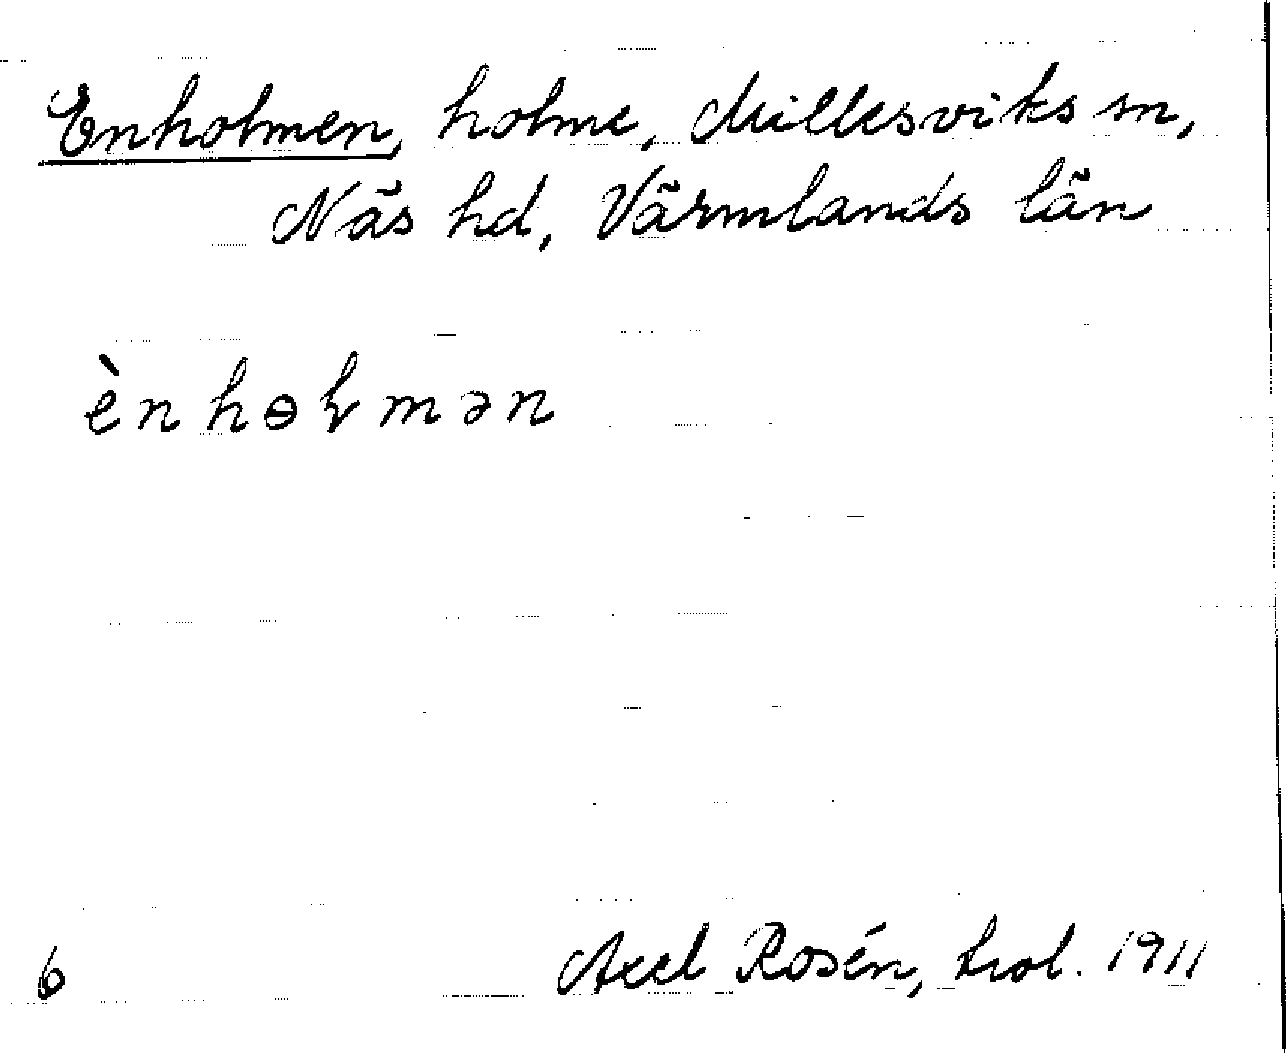 Enholmen, holme, Millesviks sn,
Näs hd, Värmlands län
ènhɵɫmən
6 Axel Rosén, trol. 1911